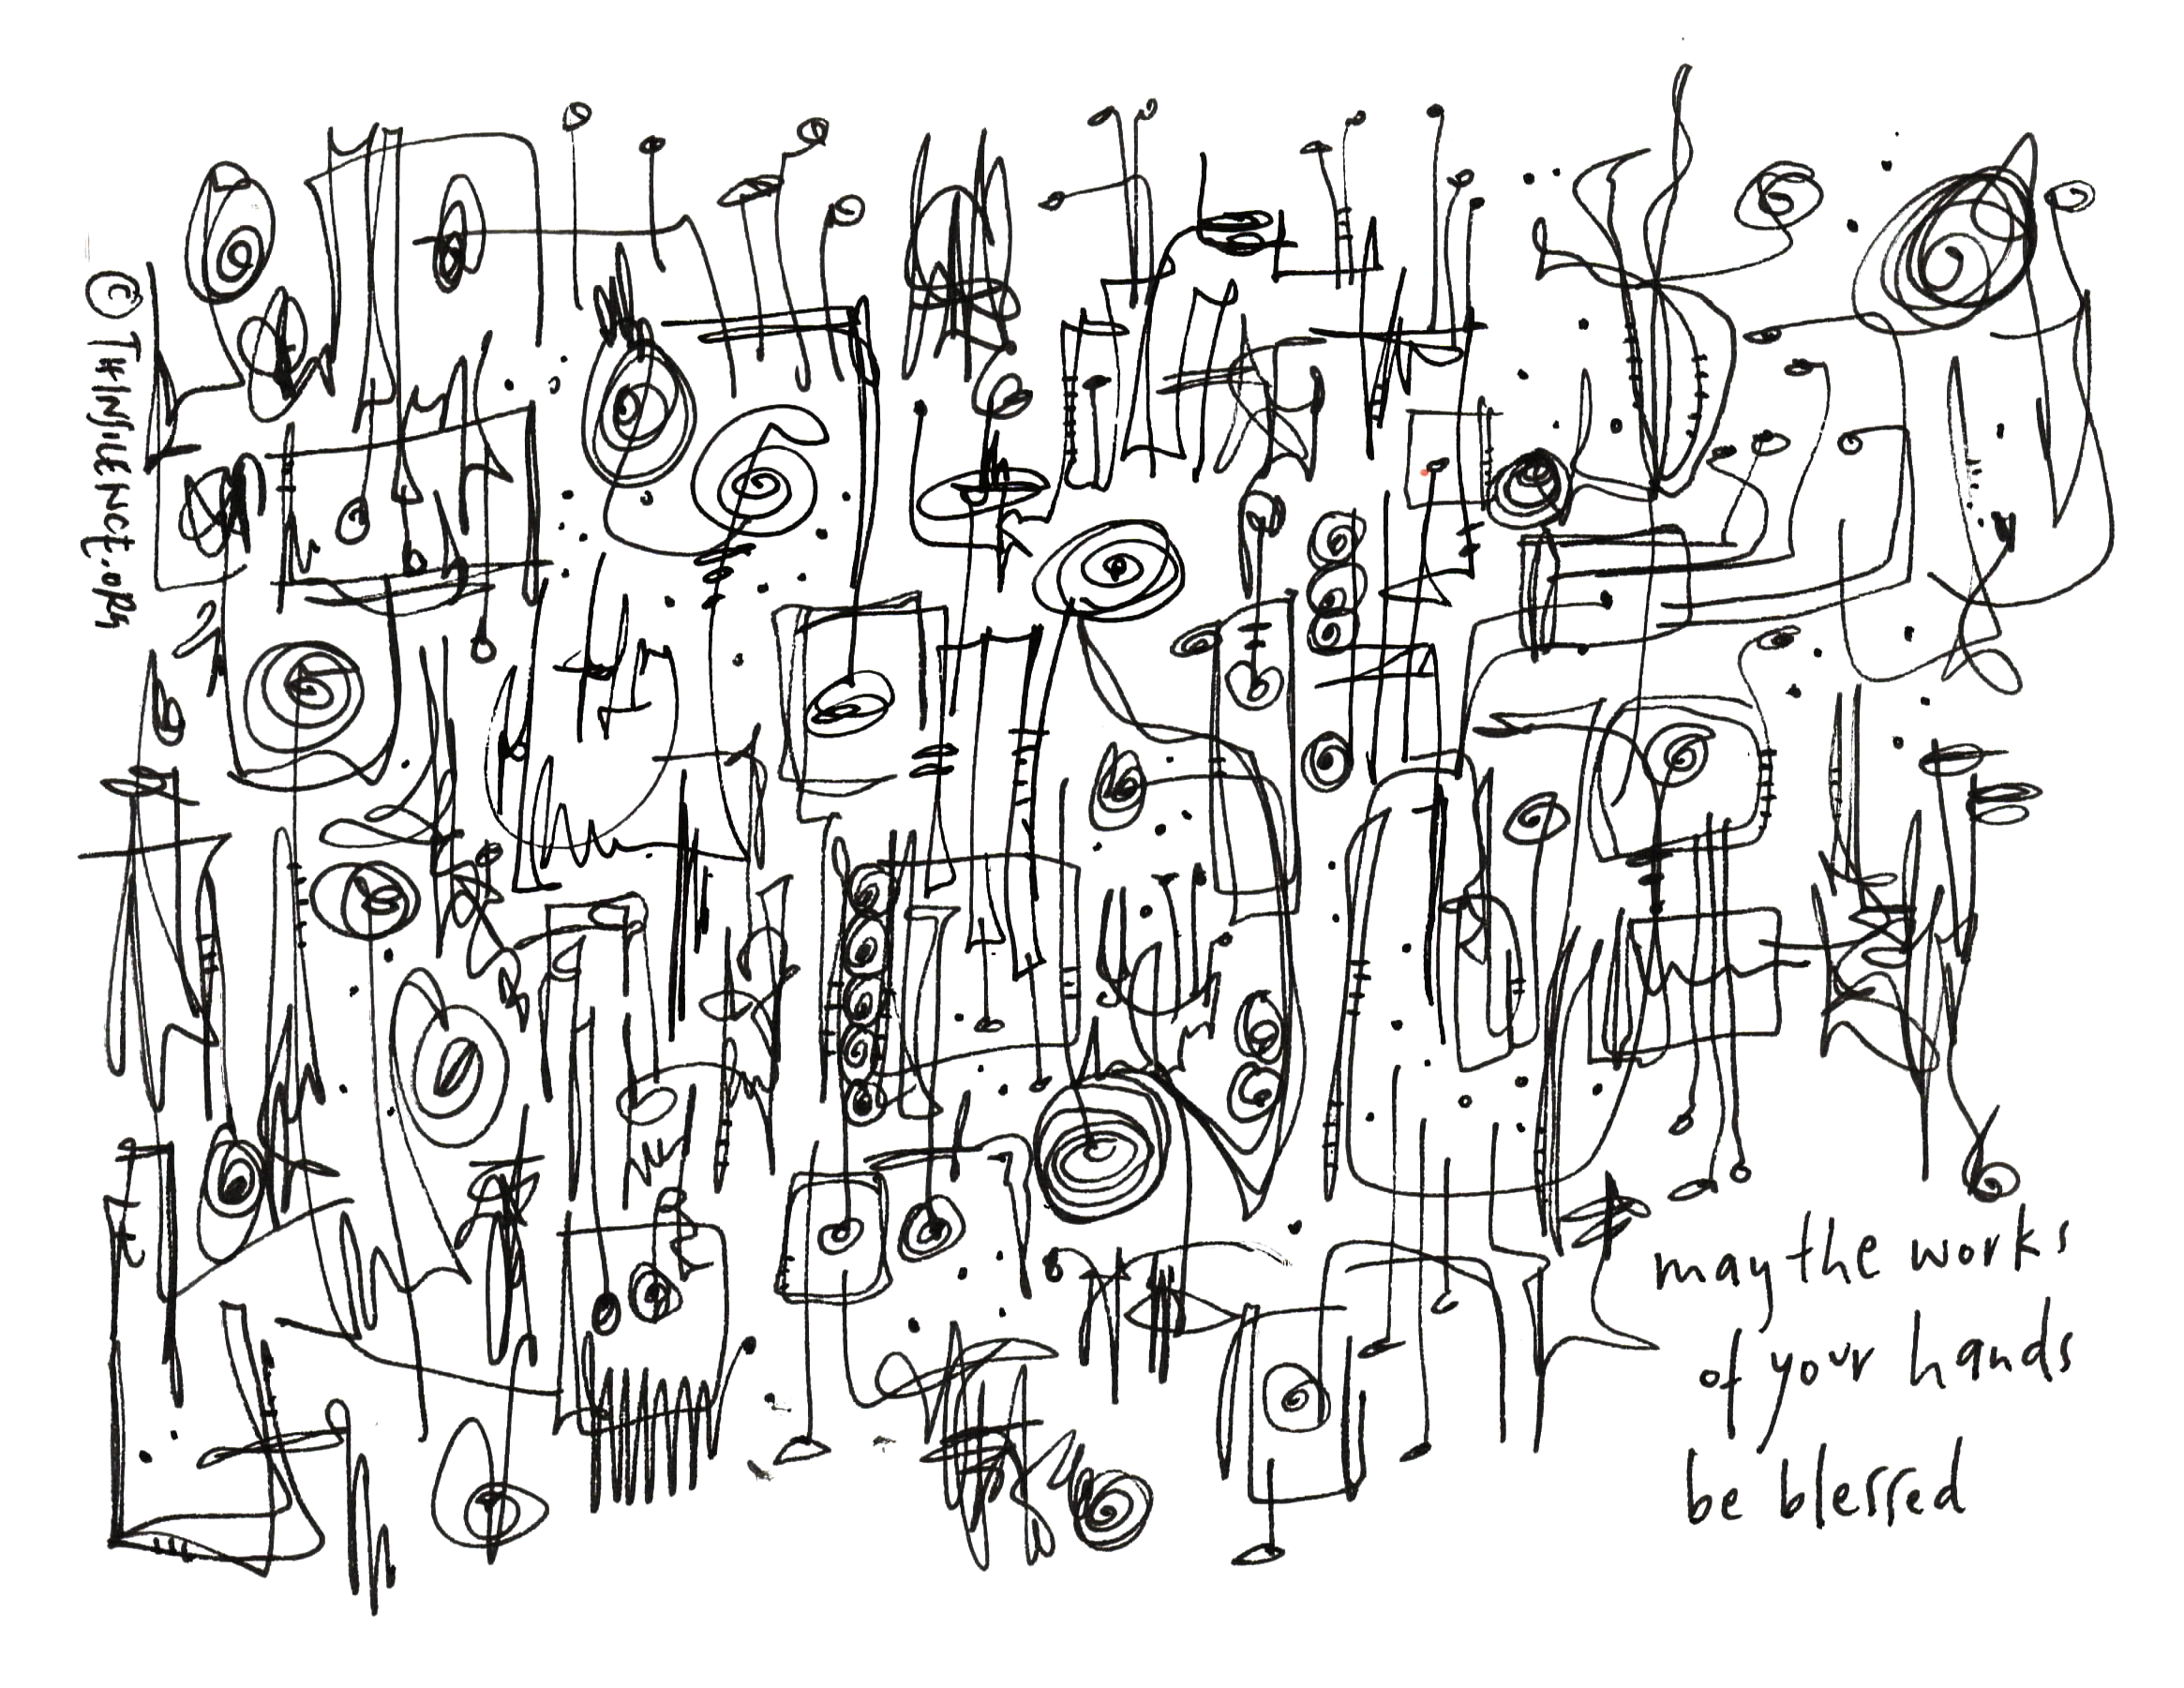 © TKINSILENCE.ORG
may the works
of your hands
be blessed